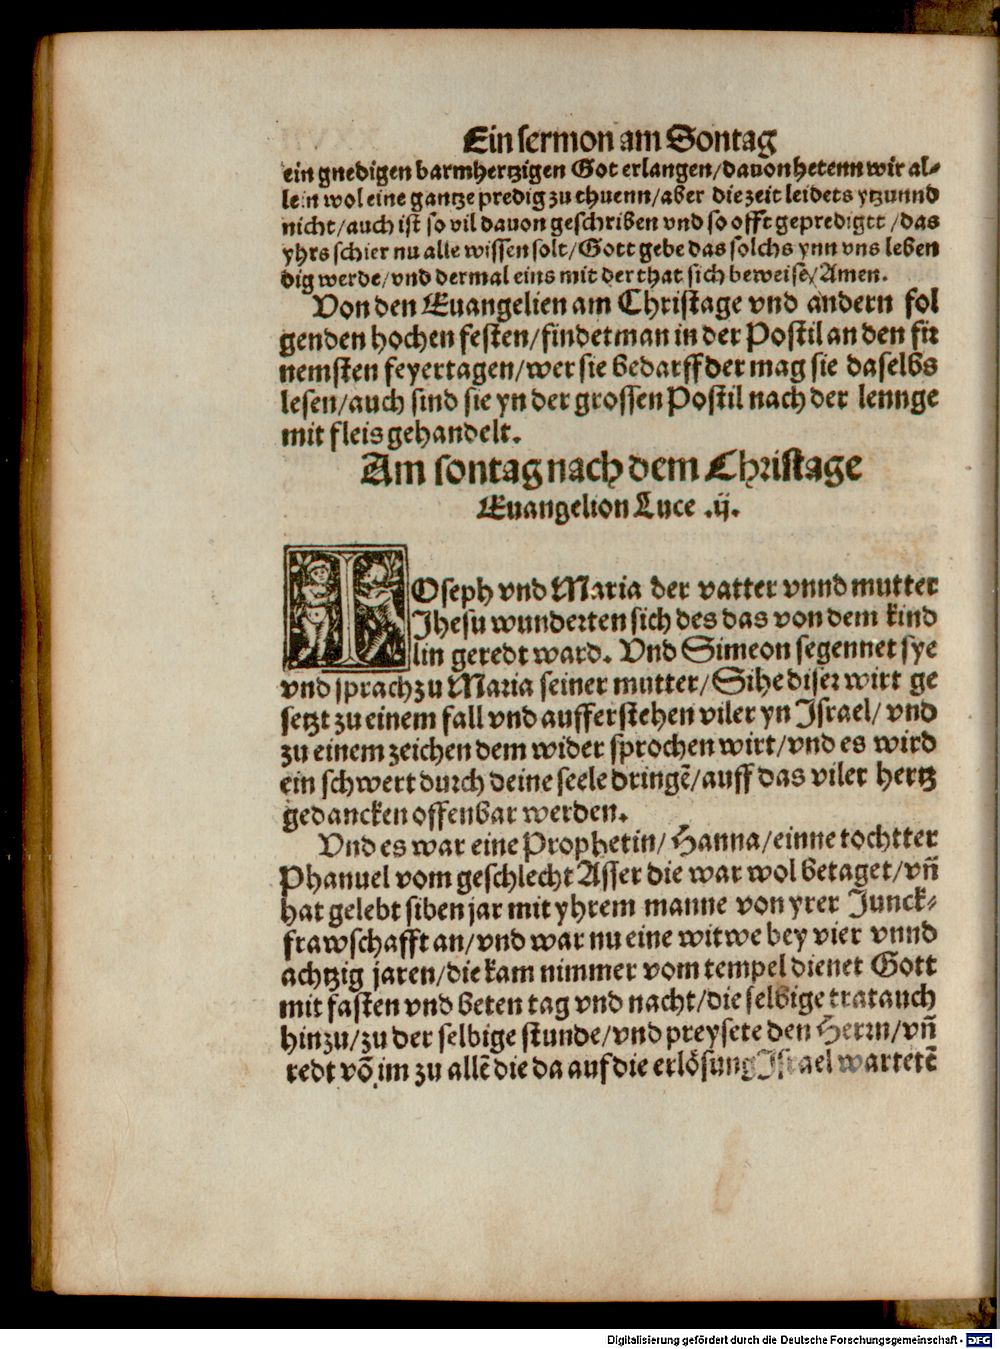 Ein sermon am Sontag
ein gnedigen barmhertzigen Got erlangen/dauon hetenn wir al⸗
lein wol eine gantze predig zu thuenn/aber die zeit leidets ytzunnd
nicht/auch ist so vil dauon geschriben vnd so offt geprediget/das
yhrs schier nu alle wissen solt/Gott gebe das solchs ynn vns leben
dig werde/vnd dermal eins mit der that sich beweise/Amen.
Von den Euangelien am Christage vnd andern fol
genden hochen festen/findet man in der Postil an den für
nemsten feyertagen/wer sie bedarff der mag sie daselbs
lesen/auch sind sie yn der grossen Postil nach der lennge
mit fleis gehandelt.
Am sontag nach dem Christage
Euangelion Luce .ij.
IOseph vnd Maria der vatter vnnd mutter
Jhesu wunderten sich des das von dem kind
lin geredt ward. Vnd Simeon segennet sye
vnd sprach zu Maria seiner mutter/Sihe diser wirt ge
setzt zu einem fall vnd aufferstehen viler yn Jsrael/vnd
zu einem zeichen dem wider sprochen wirt/vnd es wird
ein schwert durch deine seele dringē/auff das viler hertz
gedancken offenbar werden.
Vnd es war eine Prophetin/Hanna/einne tochtter
Phanuel vom geschlecht Asser die war wol betaget/vn̄
hat gelebt siben jar mit yhrem manne von yrer Junck⸗
frawschafft an/vnd war nu eine witwe bey vier vnnd
achtzig jaren/die kam nimmer vom tempel dienet Gott
mit fasten vnd beten tag vnd nacht/die selbige trat auch
hinzu/zu der selbige stunde/vnd preysete den Herrn/vn̄
redt vō im zu allē die da auf die erlösung Jsrael wartetē
Digitalisierung gefördert durch die Deutsche Forschungsgemeinschaft - DFG